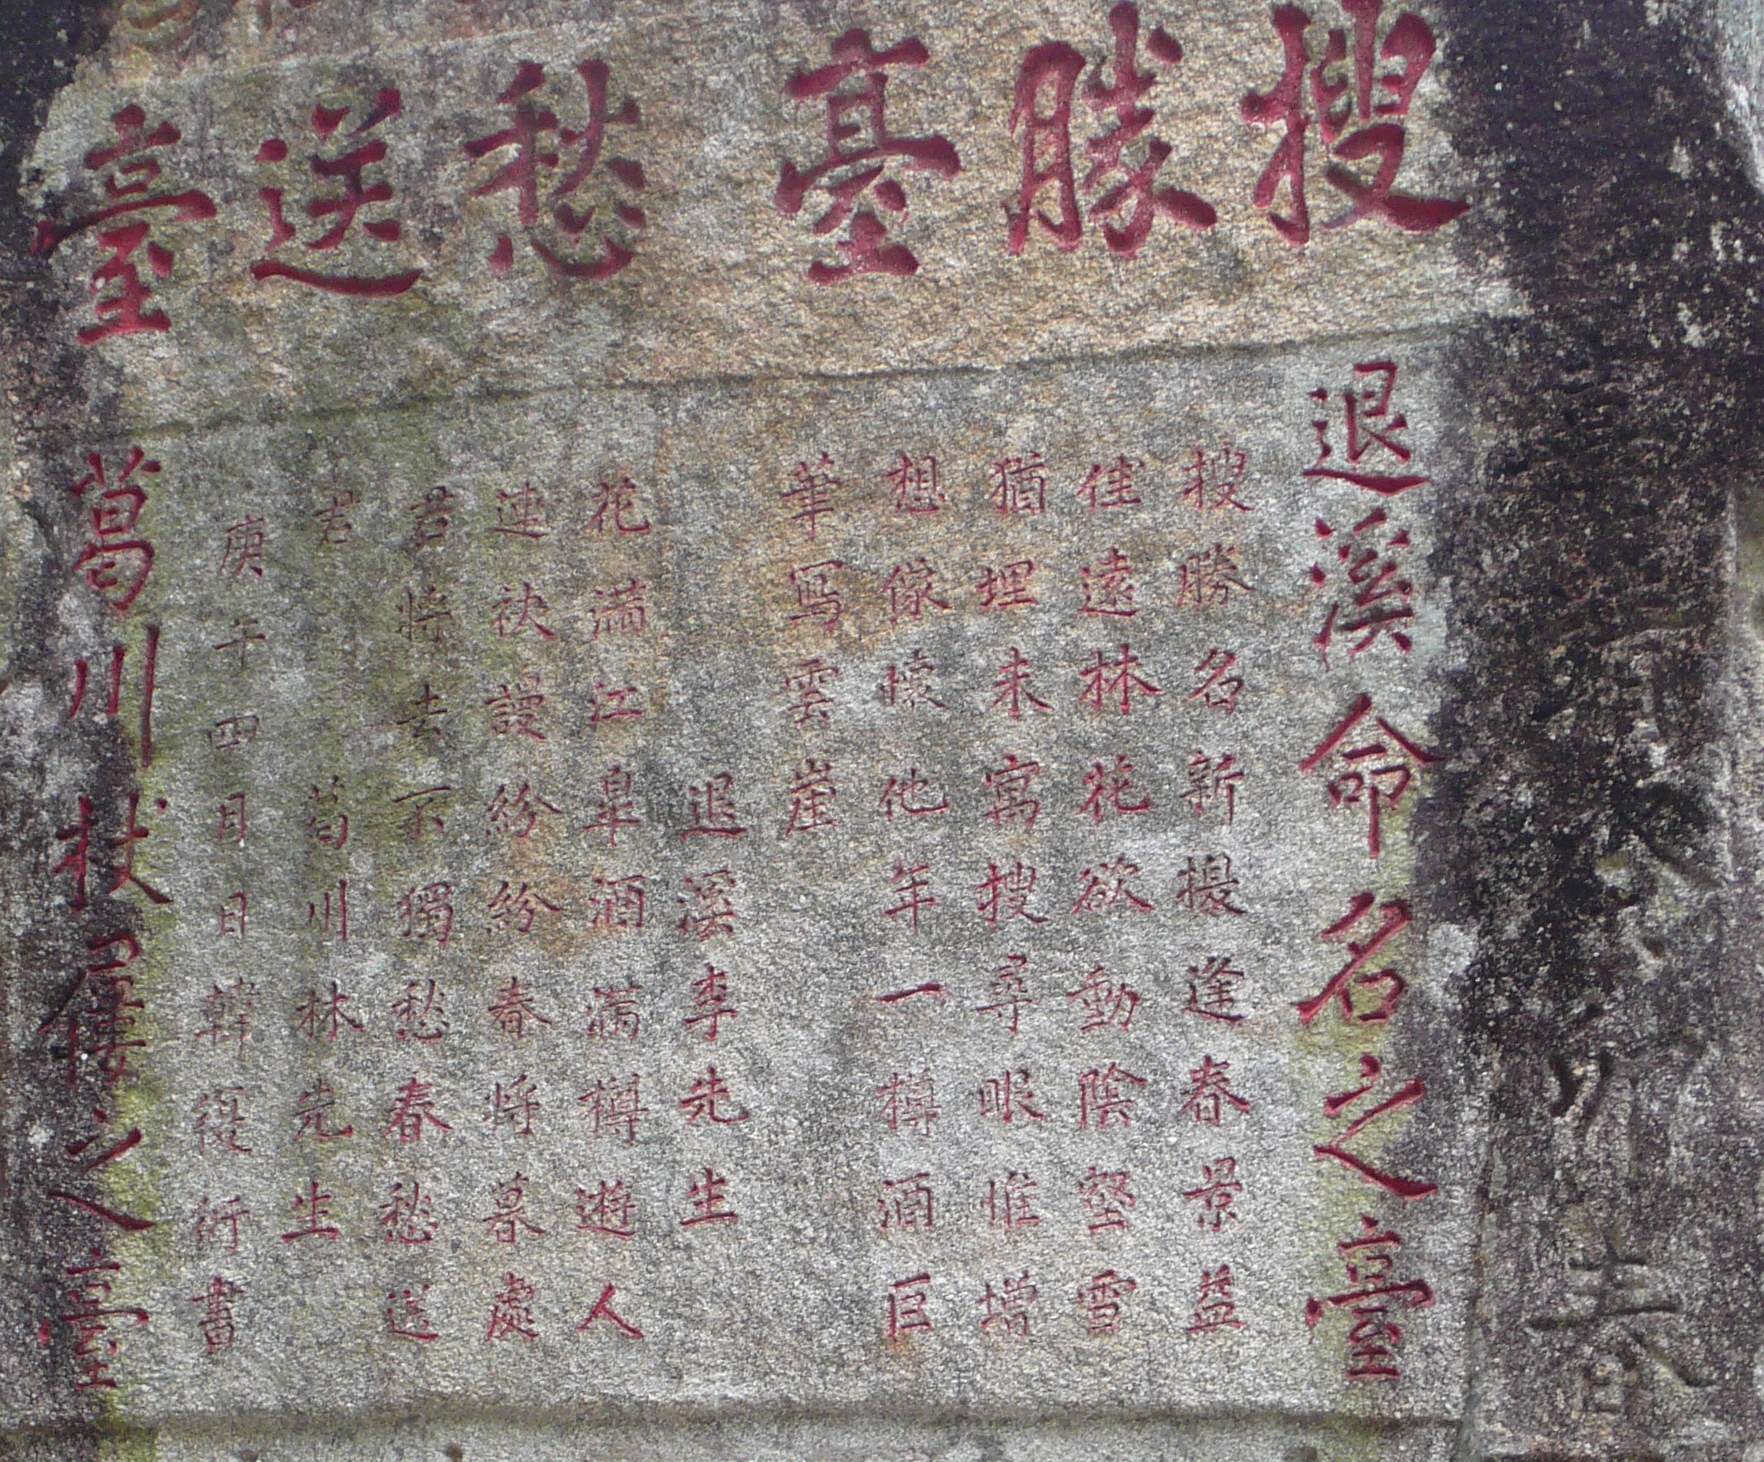 搜勝臺
愁送臺
退溪命名之臺
搜勝名新換逢春景益
佳遠林花欲動陰壑雪
猶埋未寓搜尋眼惟增
想像懷他年一樽酒巨
筆寫雲崖
退溪李先生
花滿江皐酒滿樽遊人
連袂謾紛紛春將暮處
君將去不獨愁春愁送
君
葛川林先生
庚午四月日韓復衍書
葛川杖屨之臺